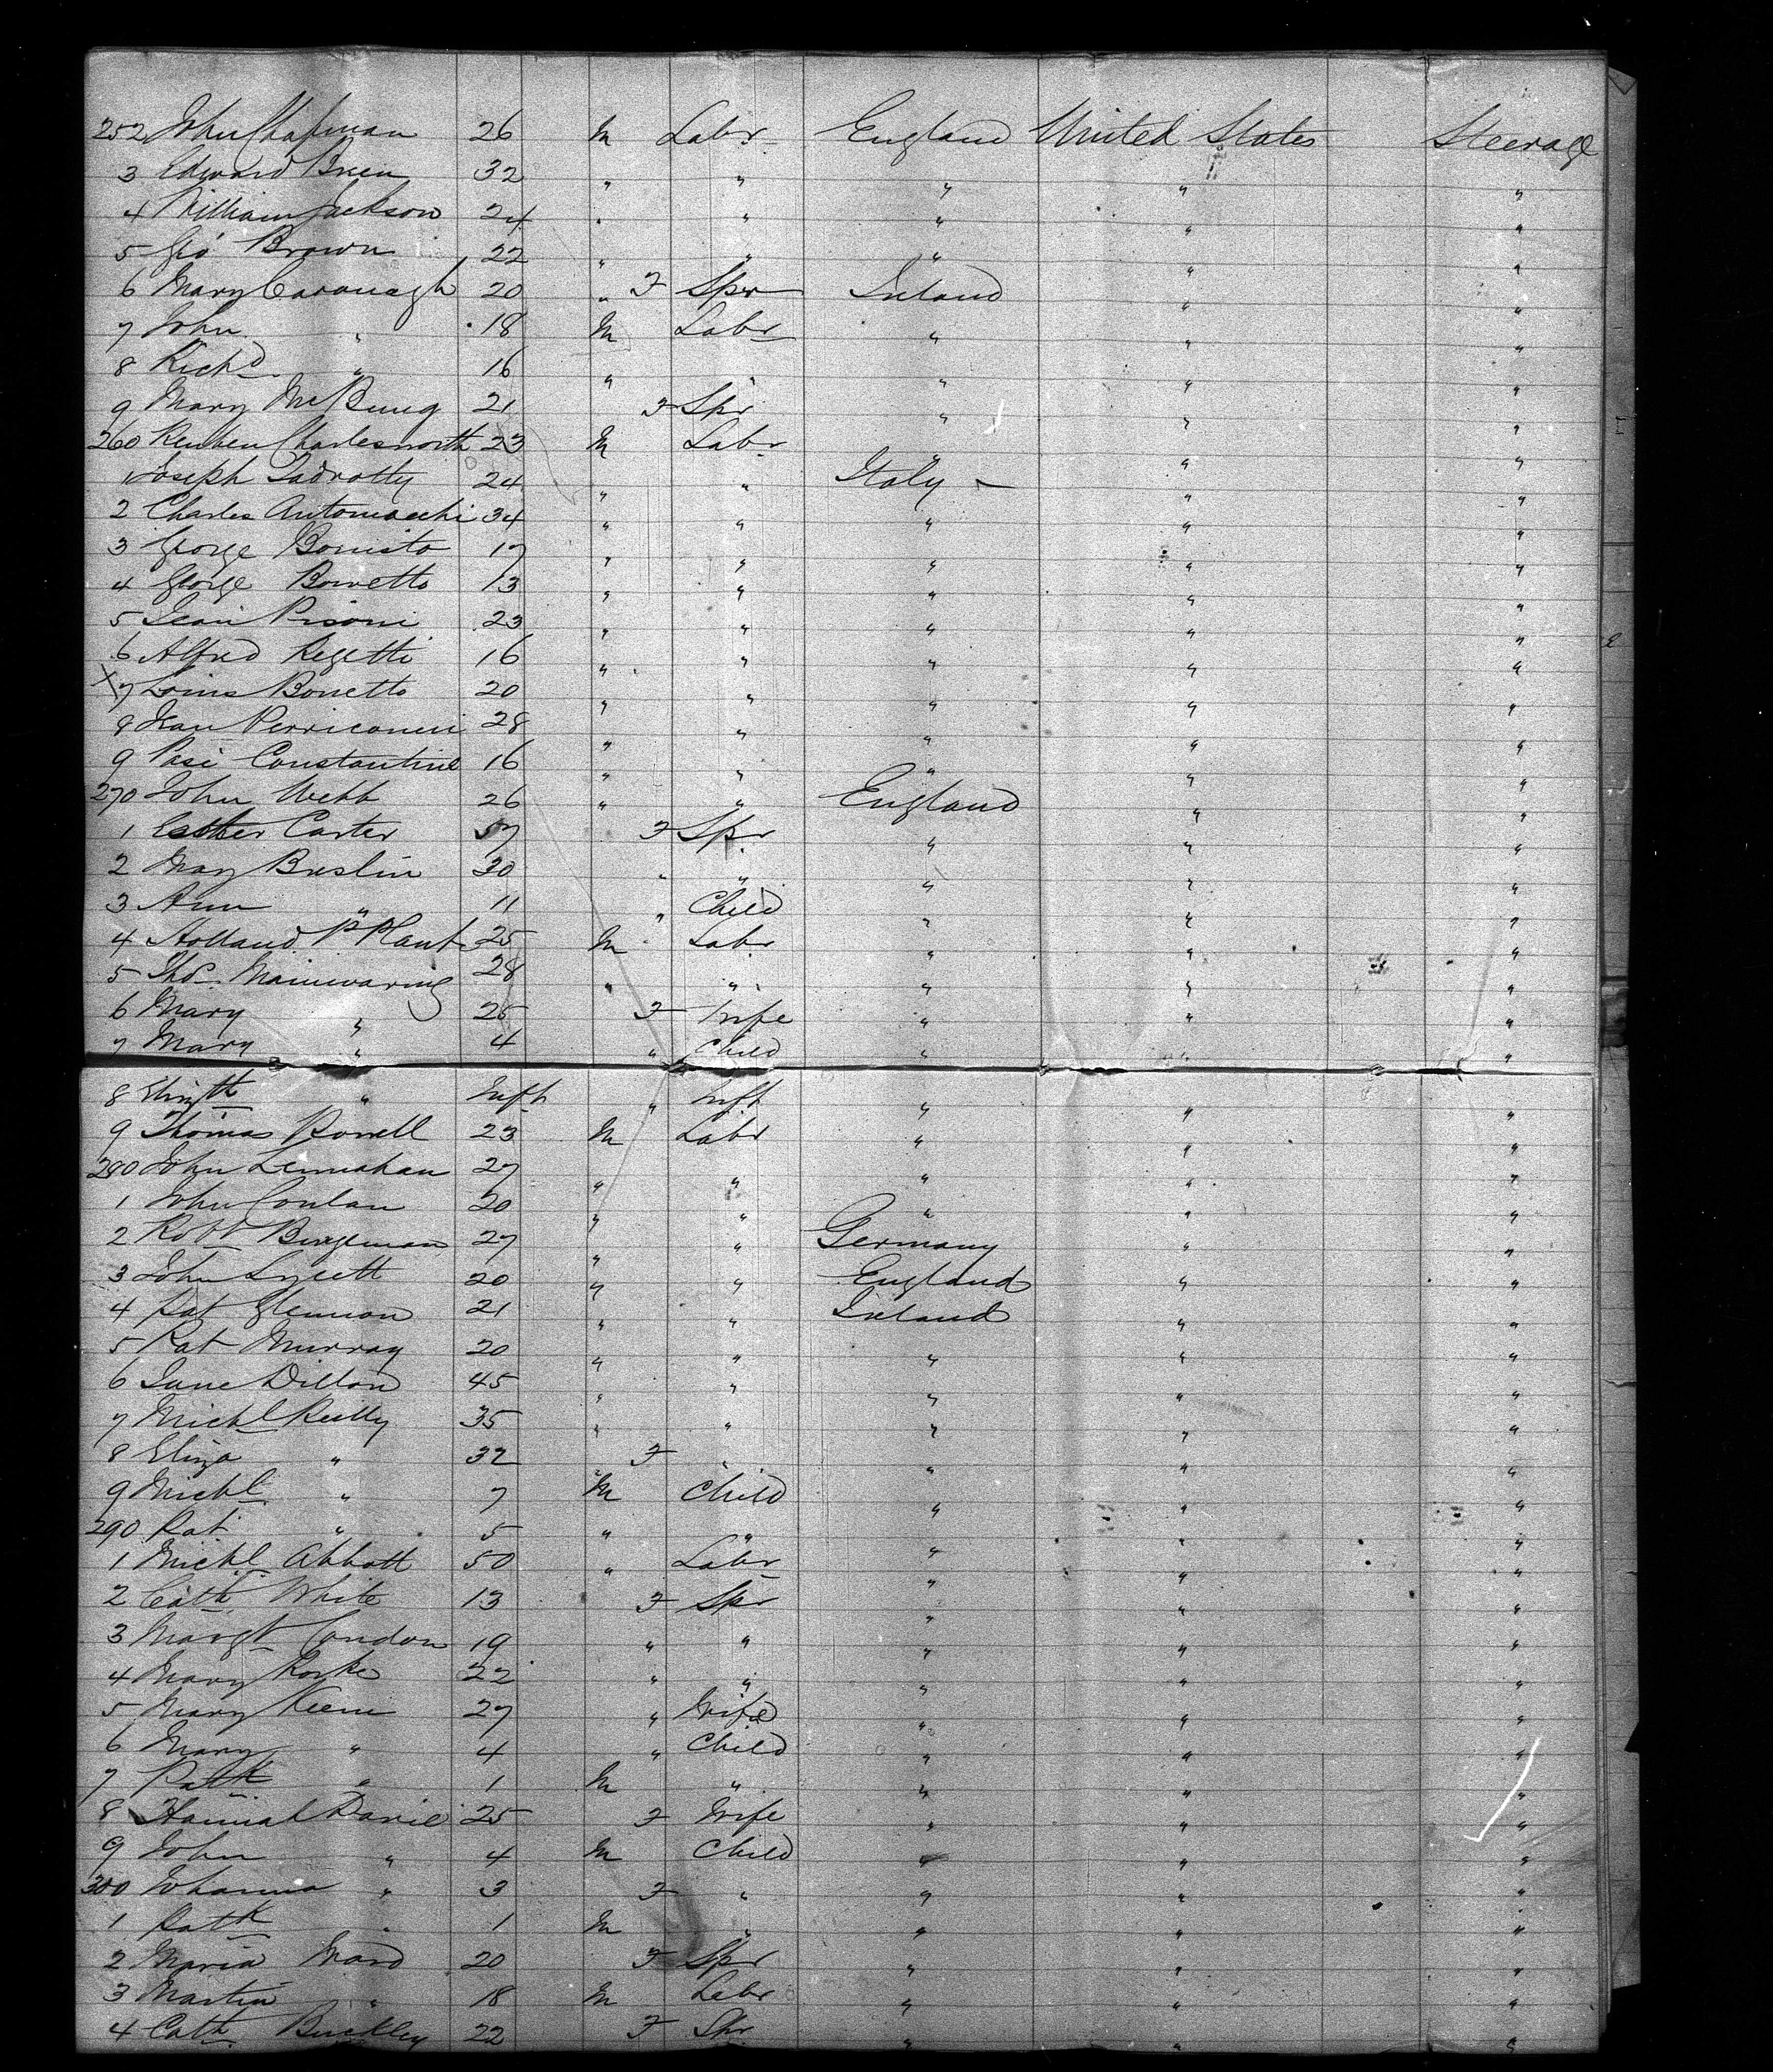 252 John Chapman 26 M Labr England United States Steerage
3 Edward Brien 32 " " " " "
4 William Jackson 24 " " " " "
5 Geo Brown 22 " " " " "
6 Mary Cavanagh 20 " F Spr Ireland " "
7 John " 18 M Labr " " "
8 Richd " 16 " " " " "
9 Mary 21 F Spr " " "
260 Reuben Charlesworth 23 M Labr " " "
1 Joseph 24 " " Italy — " "
2 Charles Antomacchi 34 " " " " "
3 George Bonisto 17 " " " " "
4 George 13 " " " " "
5 Jean Pisoni 23 " " " " "
6 Alfred Regetti 16 " " " " "
X 7 Louis Bonetto 20 " " " " "
8 Jean 28 " " " " "
9 Pasi Constantine 16 " " " " "
270 John Webb 26 " " England " "
1 Esther Carter 57 F Spr " " "
2 Mary Breslin 30 " " " " "
3 Ann " 11 " Child " " "
4 Holland P Plant 25 M Labr " " "
5 Thos Mainwaring 28 " " " " "
6 Mary " 25 F Wife " " "
7 Mary " 4 " Child " " "
8 Elizth " Inft " Inft " " "
9 Thomas Powell 23 M Labr " " "
280 John Lennahan 27 " " " " "
1 John Conlan 20 " " " " "
2 Robt Bergeman 27 " " Germany " "
3 John Lycett 20 " " England " "
4 Pat Glennon 21 " " Ireland " "
5 Pat Murray 20 " " " " "
6 Jane Dillon 45 " " " " "
7 Michl Reilly 35 " " " " "
8 Eliza " 32 F " " " "
9 Michl " 7 M Child " " "
290 Pat " 5 " " " " "
1 Michl Abbott 50 " Labr " " "
2 Cath White 13 F Spr " " "
3 Margt Condon 19 " " " " "
4 Mary Rorke 22 " " " " "
5 Mary Keeni 27 " Wife " " "
6 Mary " 4 " Child " " "
7 Patk " 1 M " " " "
8 Hannah Davie 25 F Wife " " "
9 John " 4 M Child " " "
300 Johanna " 3 F " " " "
1 Patk " 1 M " " " "
2 Maria Ward 20 F Spr " " "
3 Martin " 18 M Labr " " "
4 Cath Buckley 22 F Spr " " "